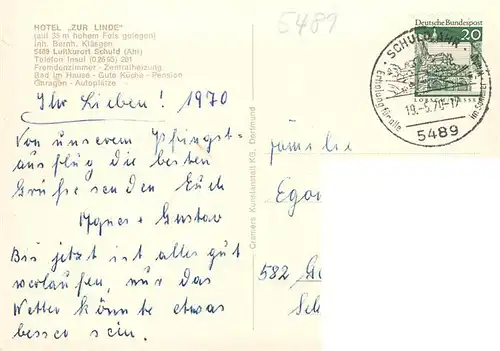 HOTEL „ZUR LINDE"
(auf 35 m hohem Fels gelegen)
Inh. Bernh. Kläsgen
5489 Luftkurort Schuld (Ahr)
Telefon Insul (02695) 201
Fremdenzimmer - Zentralheizung
Bad im Hause - Gute Küche - Pension
Garagen - Autoplätze
5489
Deutsche Bundespost
20
LORSCH/HESSEN
SCHULD/AHR
Erholung für alle
im Sommer
19.-5.70-17
5489
Ihr Lieben! 1970
Von unserem Pfingst-
ausflug die besten
Grüße senden Euch
Agnes + Gustav
Bis jetzt ist alles gut
verlaufen, nur das
Wetter könnte etwas
besser sein.
Cramers Kunstanstalt KG., Dortmund
Familie
Egon
582